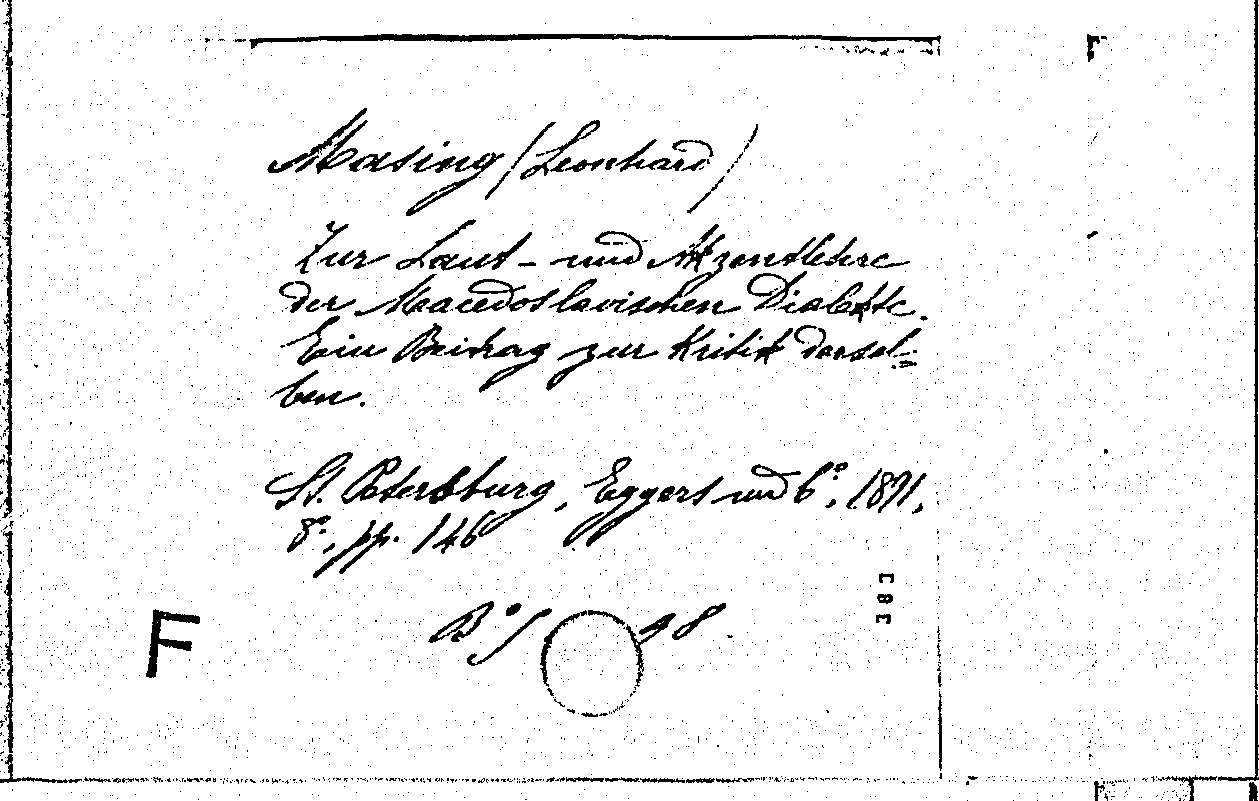 Masing (Leonhard)
Zur Laut- und Akzentlehre
der Macedoslavischen Dialekte.
Ein Beitrag zur Kritik dersel-
ben.
St. Petersburg, Eggers und C°, 1891,
8°, pp. 146
F
CBC